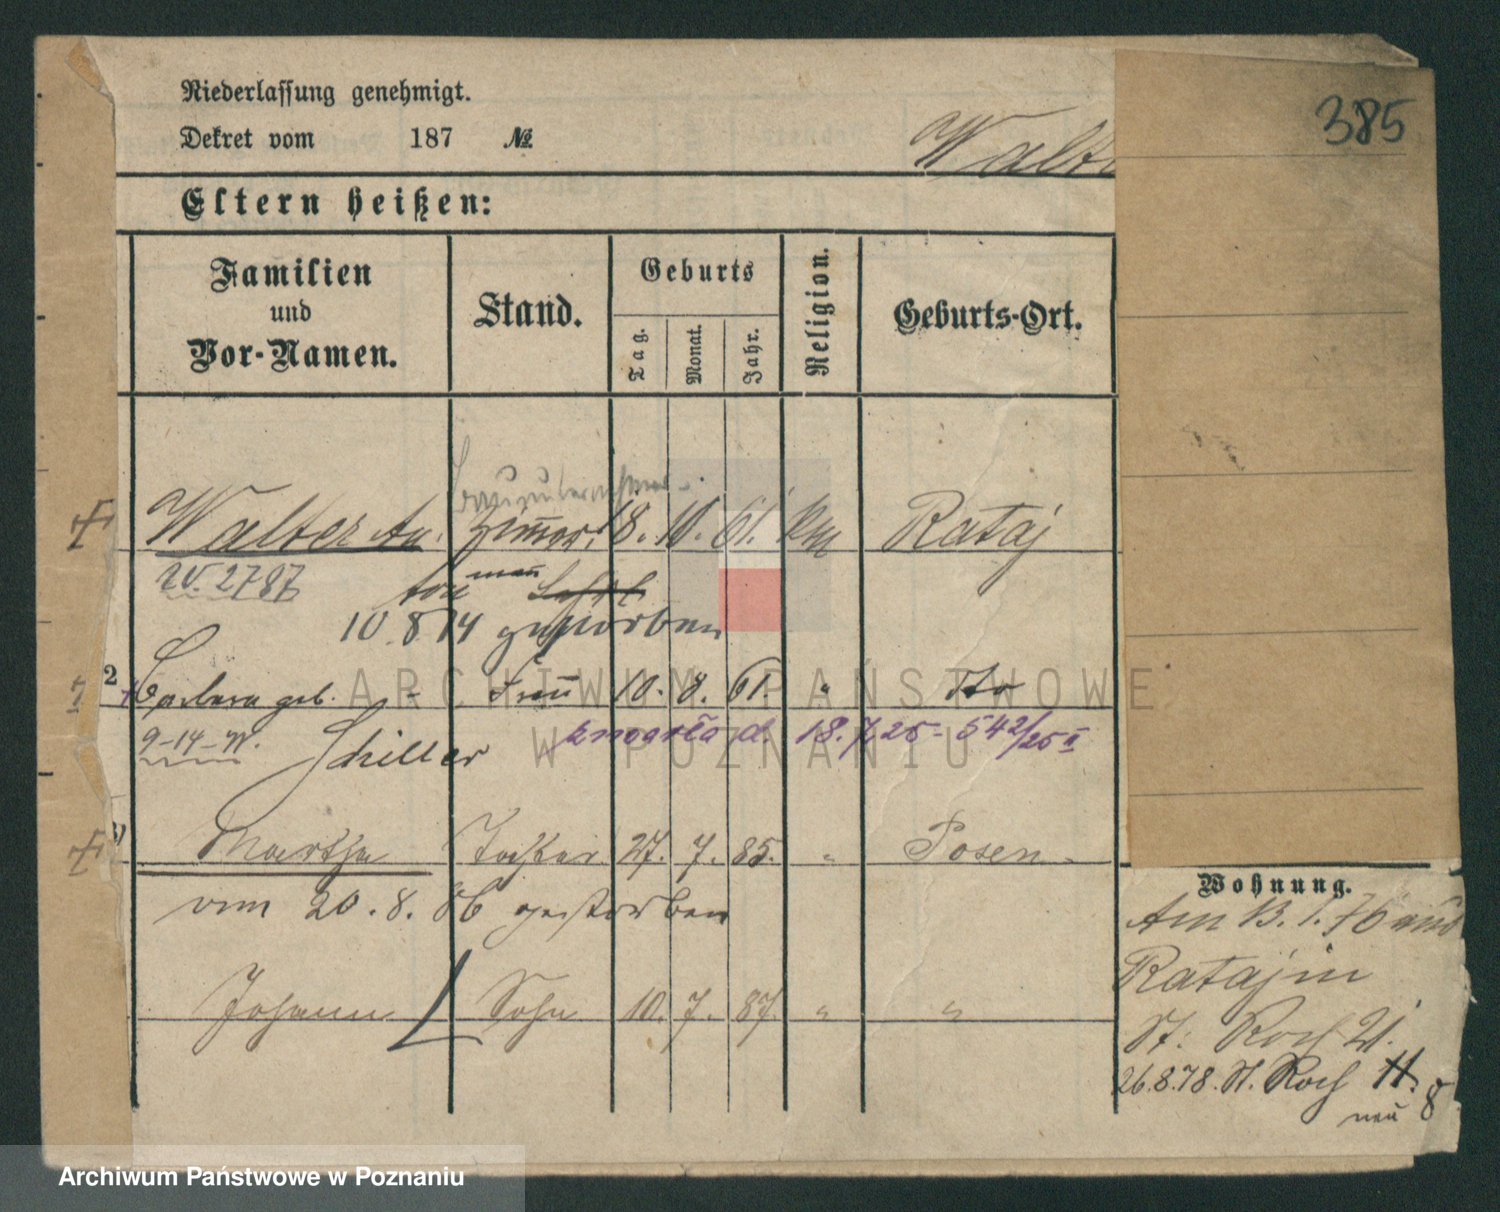 385
Niederlassung genehmigt.
Dekret vom 187 №
Walt
Eltern heißen:
Familien und Vor-Namen. Stand. Geburts Tag. Monat. Jahr. Religion. Geburts-Ort.
Bauunternehmer
Walter An. 18. 10. 61. Km Rataj
W. 2787 ton mann
10 8 14 gestorben
2 Barbara geb. Frau 10. 8. 61. " dto
9-14-W. Schiller zmarła d. 18.7.25 - 542/25 II
Martha Tochter 27. 7. 85. " Posen
vom 20. 8. 86 gestorben
Johann Sohn 10. 7. 87. " "
Wohnung.
Am 13. 1. 76 aus
Rataj in
St. Roch 21.
26.8.78. St. Roch 11.
neu 8
ARCHIWUM PAŃSTWOWE
W POZNANIU
Archiwum Państwowe w Poznaniu